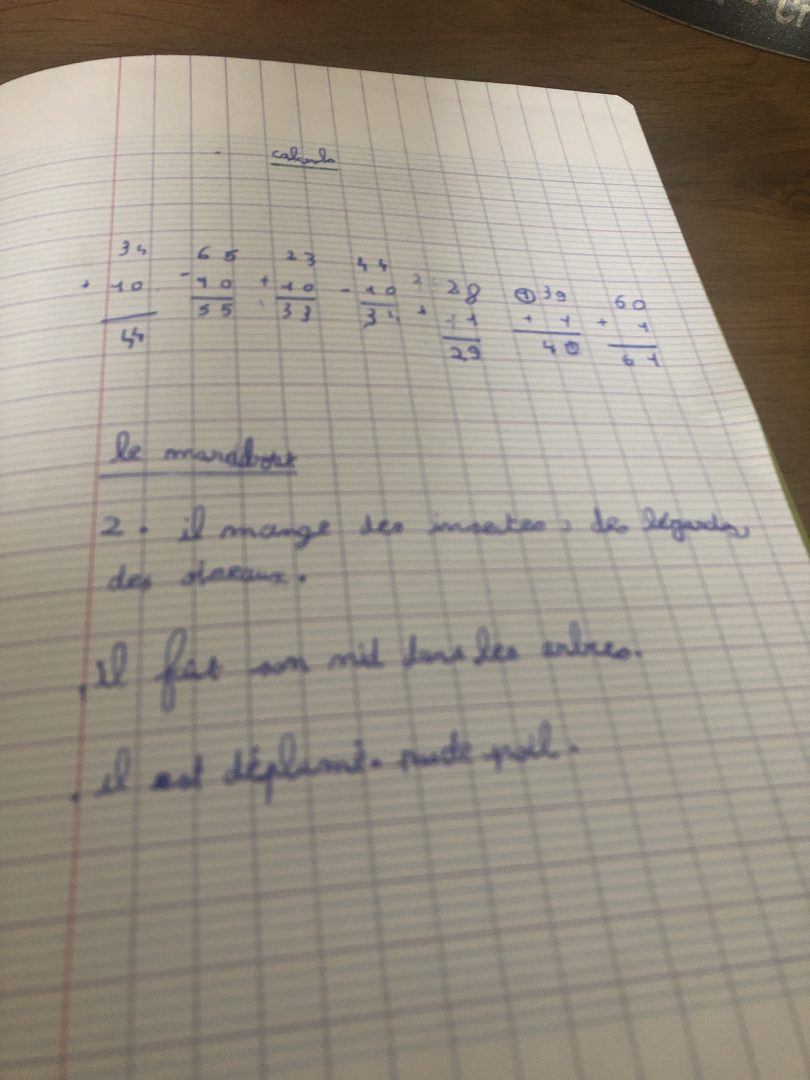 calculs
34 65 23 44 28 39 60
+ 10 - 10 + 10 - 10 + 1 + 1 + 1
44 55 33 34 29 40 61
le marabout
2. il mange des insectes, des légards,
des oiseaux.
. Il fait son nid dans les arbres.
. il est déplumé.